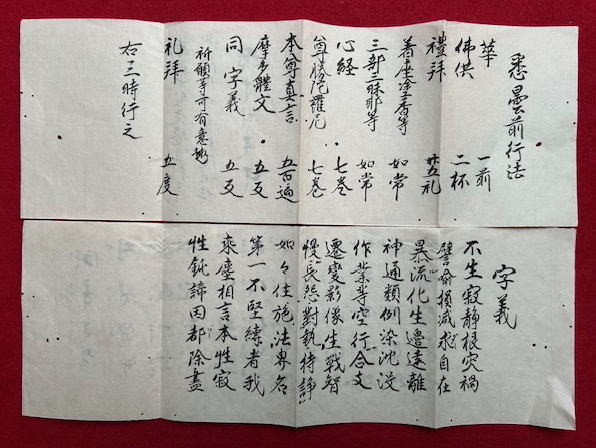 悉曇前行法
華 一前
佛供 二杯
禮拜 廿五礼
着座塗香等 如常
三部三昧耶等 如常
心経 七巻
尊勝陀羅尼 七巻
本尊真言 五百遍
摩多體文 五反
同字義 五反
祈願等可有意趣
礼拜 五度
右三時行之
字義
不生寂静根災禍
譬喩損減求自在
暴流化生邊遠離
神通類例染沈没
作業等空行合支
遷變影像生戦智
慢長怨對執持諍
如々住施法界名
第一不堅縛者我
乗塵相言本性寂
性鈍諦因都除盡